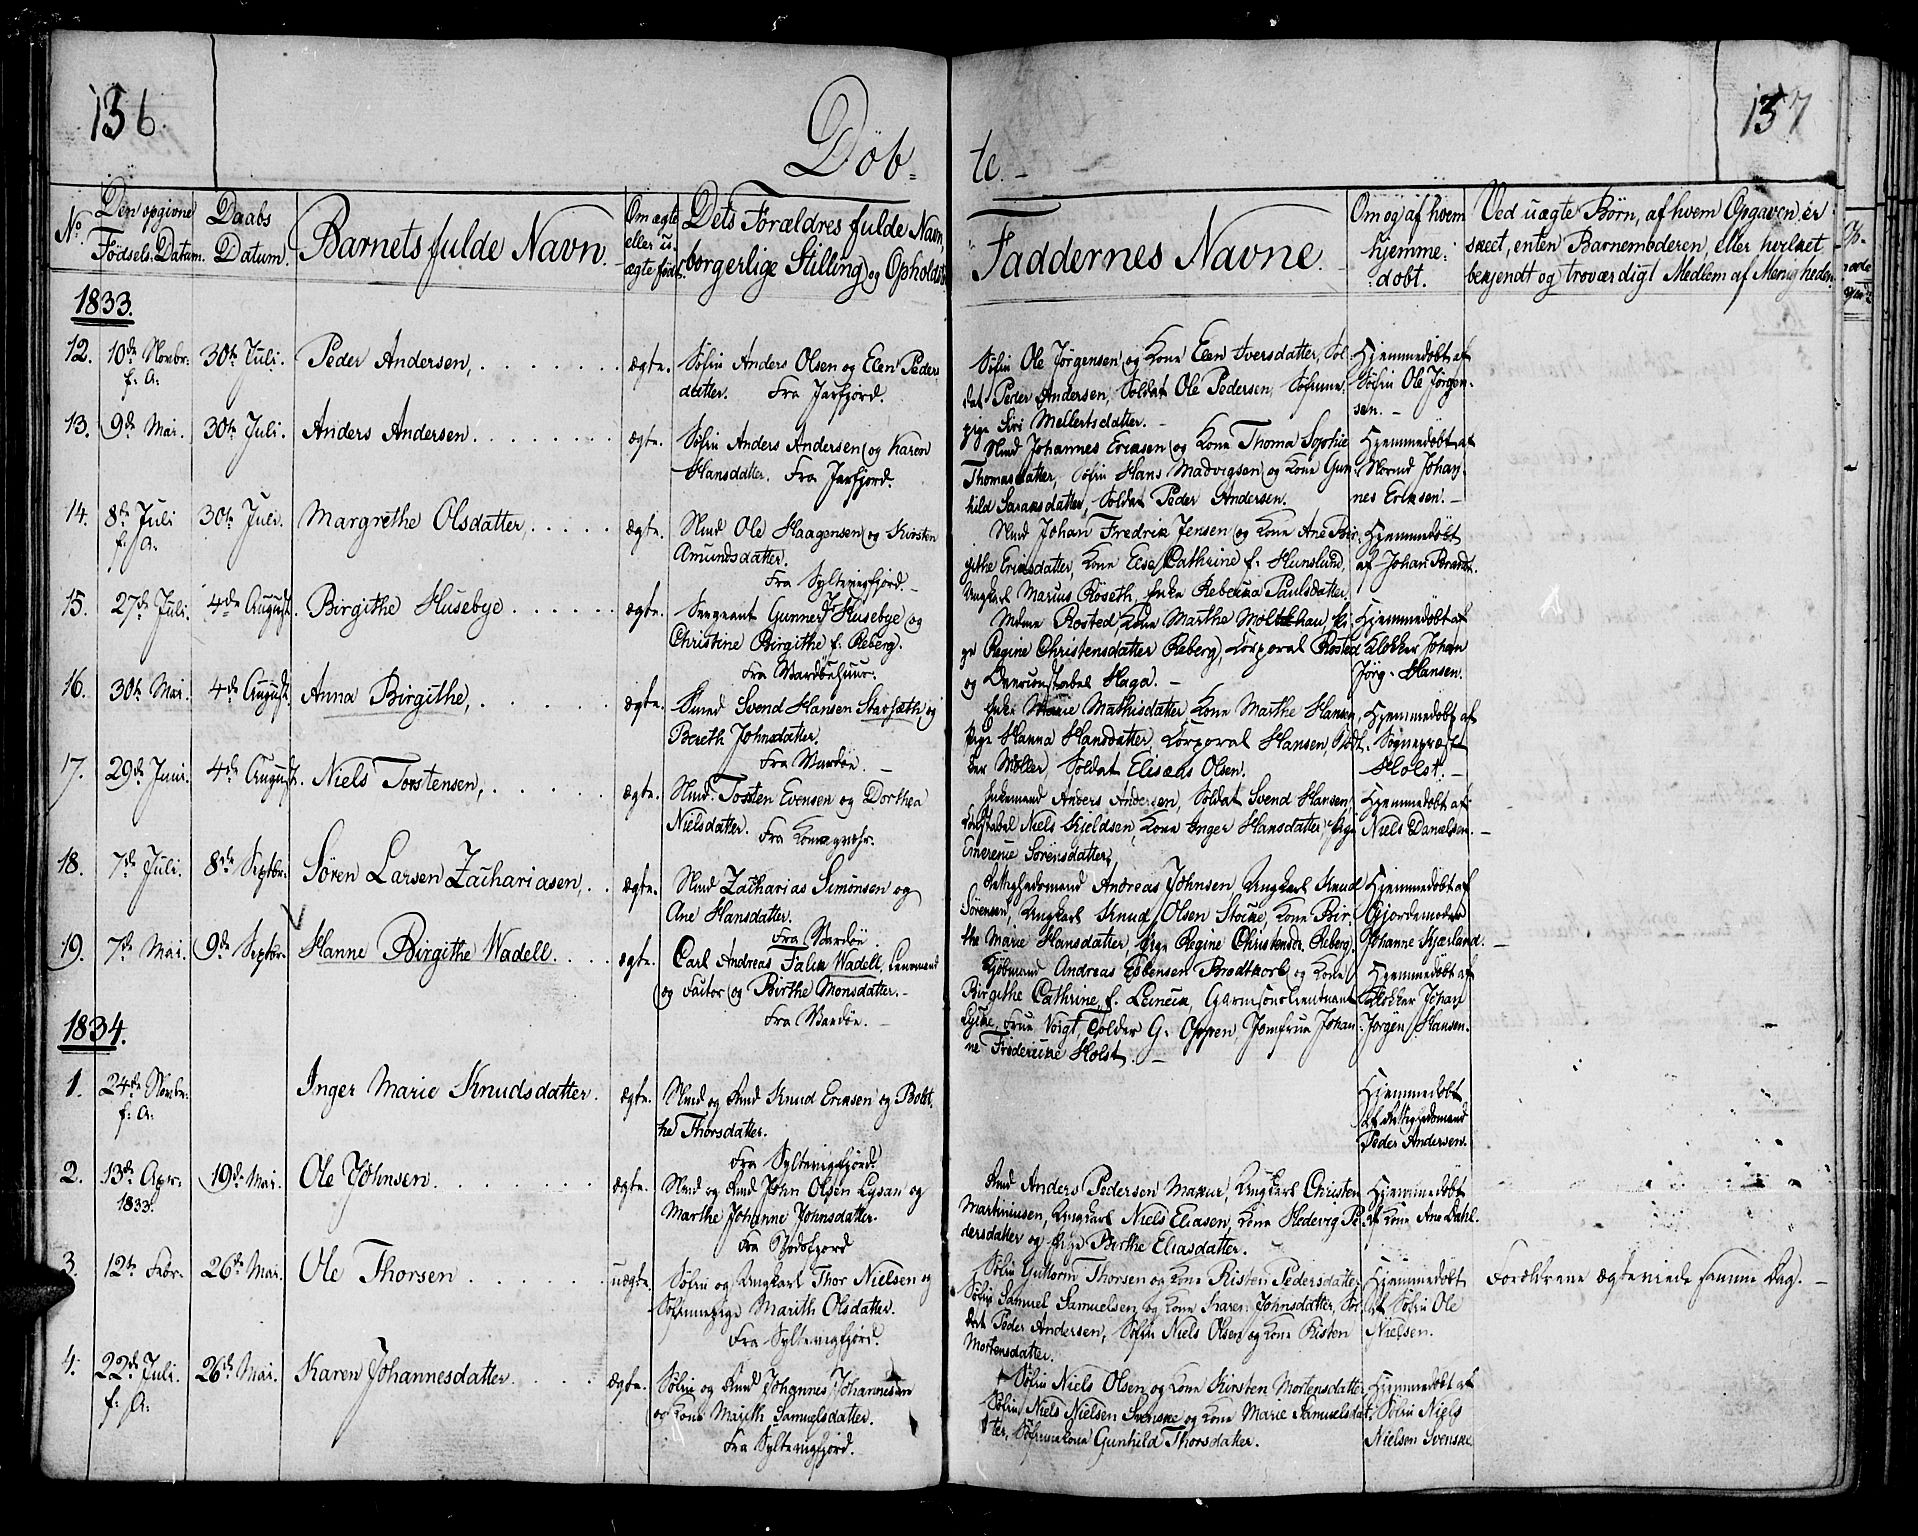 136.
137
Döb=
te. -
No.
Den opgivne Födsels Datum.
Daabs Datum.
Barnets fulde Navn.
Om ægte eller uægte født.
Dets Forældres fulde Navn, borgerlige Stilling og Opholdst
Faddernes Navne.
Om og af hvem hjemmedöbt.
Ved uægte Børn, af hvem Opgaven er
skeet, enten Barnemoderen, eller hvilket
bekjendt og troværdigt Medlem af Menigheden
1833.
12. 10de Novbr: f: A: 30te Juli. Peder Andersen, ægte.
Søfin Anders Olsen og Elen Peders
datter. Fra Jarfjord.
Søfin Ole Jørgensen og Kone Elen Iversdatter, Sol
dat Peder Andersen, Soldat Ole Pedersen, Søfinne
pige Siri Mellertsdatter. -
Hjemmedöbt af
Søfin Ole Jørgen-
sen. -
13. 9de Mai. 30te Juli. Anders Andersen ægte.
Søfin Anders Andersen og Karen
Hansdatter. Fra Jarfjord.
Nmd Johannes Eriksen og Kone Thoma Sophie
Thomasdatter, Søfin Hans Madvigsen og Kone Gun
hild Saradatter, Soldat Peder Andersen.
Hjemmedöbt af
Normd Johan-
nes Eriksen. -
14. 8de Juli f: A: 30te Juli. Margrethe Olsdatter, ægte.
Nmd Ole Haagensen og Kirsten
Amundsdatter.
Fra Syltevigfjord. -
Nmd Johan Fredrik Jensen og Kone Ane Bir
githe Eriksdatter, Kone Else Cathrine f. Hunslund,
Ungkarl Marius Röseth, Enke Rebekka Paulsdatter.
Hjemmedöbt
af Johan Brandt.
15. 27de Juli. 4de August. Birgithe Husebye ægte.
Sergeant Gunner Husebye og
Christine Birgithe f. Reberg.
Fra Wardöehuus.
Rosted, Kone Marthe Molthau, Pi
ge Regine Christensdatter Reberg, Korporal Rosted
og Overconstabel Haga. -
Hjemmedöbt af
Klokker Johan
Jörg. Hansen.
16. 30te Mai. 4de August. Anna Birgithe, ægte.
Smed Svend Hansen Starsæth og
Bereth Johnsdatter.
Fra Wardöe. -
Enke Marie Mathisdatter, Kone Marthe Hansen,
Pige Hanna Hansdatter, Korporal Hansen,
Möller, Soldat Elisæus Olsen.
Hjemmedöbt af
Sognepræst
Holst. -
17. 29de Juni. 4de August. Niels Torstensen, ægte.
Nmd. Tosten Evensen og Dorthea
Nielsdatter. Fra Komagnæhr.
Enkemand Anders Andersen, Soldat Svend Hansen,
Niels Kjeldsen, Kone Inger Hansdatter, Pige
Emerense Sörensdatter,
Hjemmedöbt af
Niels Danielsen. -
18. 7de Juli. 8de Septbr: Sören Larsen Zachariasen, ægte.
Nmd Zacharias Simonsen og
Ane Hansdatter.
Fra Wardöe.
Fattighedsmand Andreas Johnsen, Ungkarl Knud
Sörensen, Ungkarl Knud Olsen Stokke, Kone Bir
the Marie Hansdatter, Pige Regine Christensdr. Reberg.
Hjemmedöbt af
Gjordemoder
Johanne Kjærland. -
19. 7de Mai. 9de Septbr. Hanne Birgithe Wadell. ægte.
Carl Andreas Falck Wadell, Lensmand
og Factor og Birthe Monsdatter. -
Fra Wardöe. -
Kjöbmand Andreas Esbensen Brodtkorb og Kone
Birgithe Cathrine f. Leinum, Garnisonslieutenant
Lykke, Frue Voigt, Tolder G. Oppen, Jomfrue Johan
ne Fredericke Holst. -
Hjemmedöbt af
Klokker Johan
Jörgen Hansen.
1834.
1. 24de Novbr: f: A: Inger Marie Knudsdatter. ægte.
Nmd og Rmd Knud Eriksen og Bolet
he Thorsdatter.
Fra Syltevigfjord.
Hjemmedöbt
af Fattighedsmand
Peder Andersen.
2. 13de Apr: 1833. 19de Mai. Ole Johnsen ægte.
Nmd og Rmd John Olsen Lysan og
Marthe Johanne Johnsdatter.
Fra Bodsfjord
Rmd Anders Pedersen Makur, Ungkarl Christen
Martiniusen, Ungkarl Niels Eliasen, Kone Hedevig Pe-
dersdatter og Pige Birthe Eliasdatter.
Hjemmedöbt
af Kone Ane Dahl.
3. 12te Febr. 26de Mai. Ole Thorsen uægte.
Söfin og Ungkarl Thor Nielsen og
Söfinnepige Marith Olsdatter.
Fra Syltevigfjord.
Söfin Guttorm Thorsen og Kone Risten Pedersdatter,
Söfin Samuel Samuelsen og Kone Karen Johnsdatter, Sol
dat Peder Andersen, Söfin Niels Olsen og Kone Risten
Mortensdatter.
Hjemmedöbt
af Söfin Ole
Nielsen.
Forældrene ægteviede samme Dag. -
4. 22de Juli. f. A: 26de Mai. Karen Johannesdatter ægte.
Söfin og Rmd Johannes Johannesen
og Kone Marith Samuelsdatter.
Fra Syltevigfjord.
Söfin Niels Olsen og Kone Kirsten Mortensdatter,
Söfin Niels Nielsen Svenske og Kone Marie Samuelsdat
ter, Söfinnekone Gunhild Thorsdatter.
Hjemmedöbt af
Söfin Niels
Nielsen Svenske